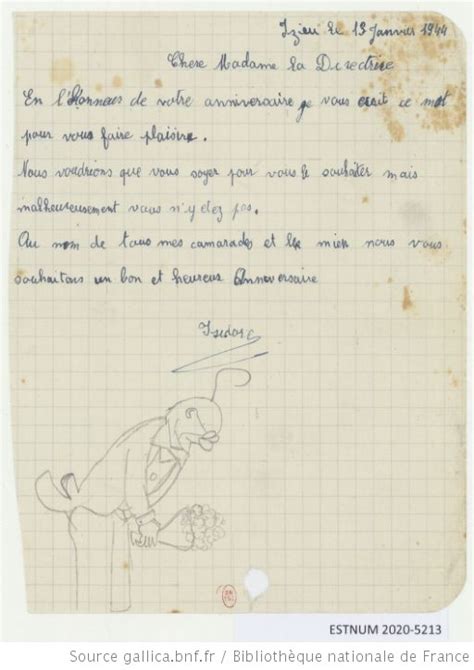 Izieu le 13 Janvier 1944
Chere Madame la Directrice
En l'Honneur de votre anniversaire je vous ecrit ce mot
pour vous faire plaisire.
Nous voudrions que vous soyer pour vous le souhaiter mais
malheureusement vous n'y etez pas.
Au nom de tous mes camarades et le mien nous vous
souhaitons un bon et heureus Anniversaire
Isidore
ESTNUM 2020-5213
Source gallica.bnf.fr / Bibliothèque nationale de France